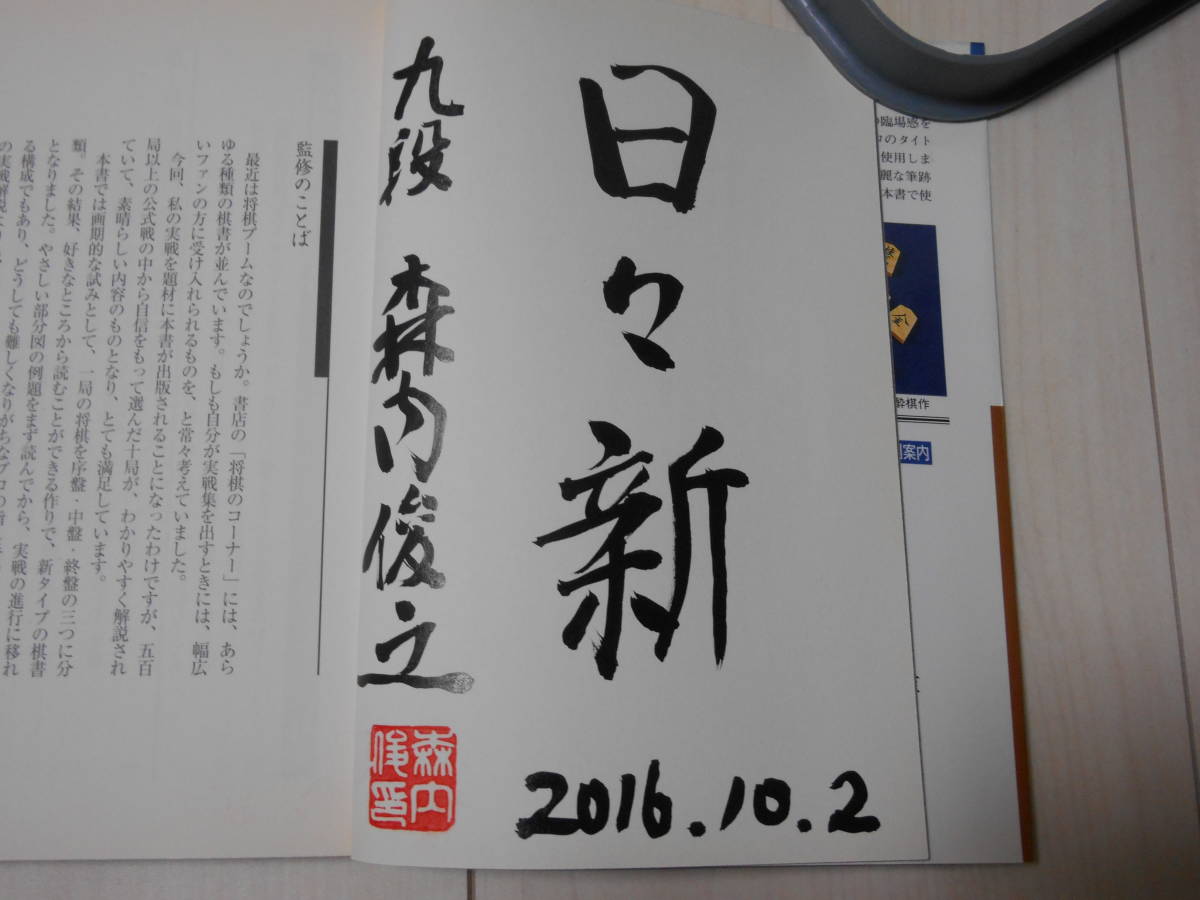 日々新
九段 森内俊之
森内
俊印
2016.10.2
監修のことば
最近は将棋ブームなのでしょうか。書店の「将棋のコーナー」には、あら
ゆる種類の棋書が並んでいます。もしも自分が実戦集を出すときには、幅広
いファンの方に受け入れられるものを、と常々考えていました。
今回、私の実戦を題材に本書が出版されることになったわけですが、五百
局以上の公式戦の中から自信をもって選んだ十局が、わかりやすく解説され
ていて、素晴らしい内容のものとなり、とても満足しています。
本書では画期的な試みとして、一局の将棋を序盤・中盤・終盤の三つに分
類。その結果、好きなところから読むことができる作りで、新タイプの棋書
となりました。やさしい部分図の例題をまず読んでから、実戦の進行に移れ
る構成でもあり、どうしても難しくなりがちなプロの
の実戦解説
臨場感を
のタイト
使用しま
麗な筆跡
本書で使
酔棋作
案内